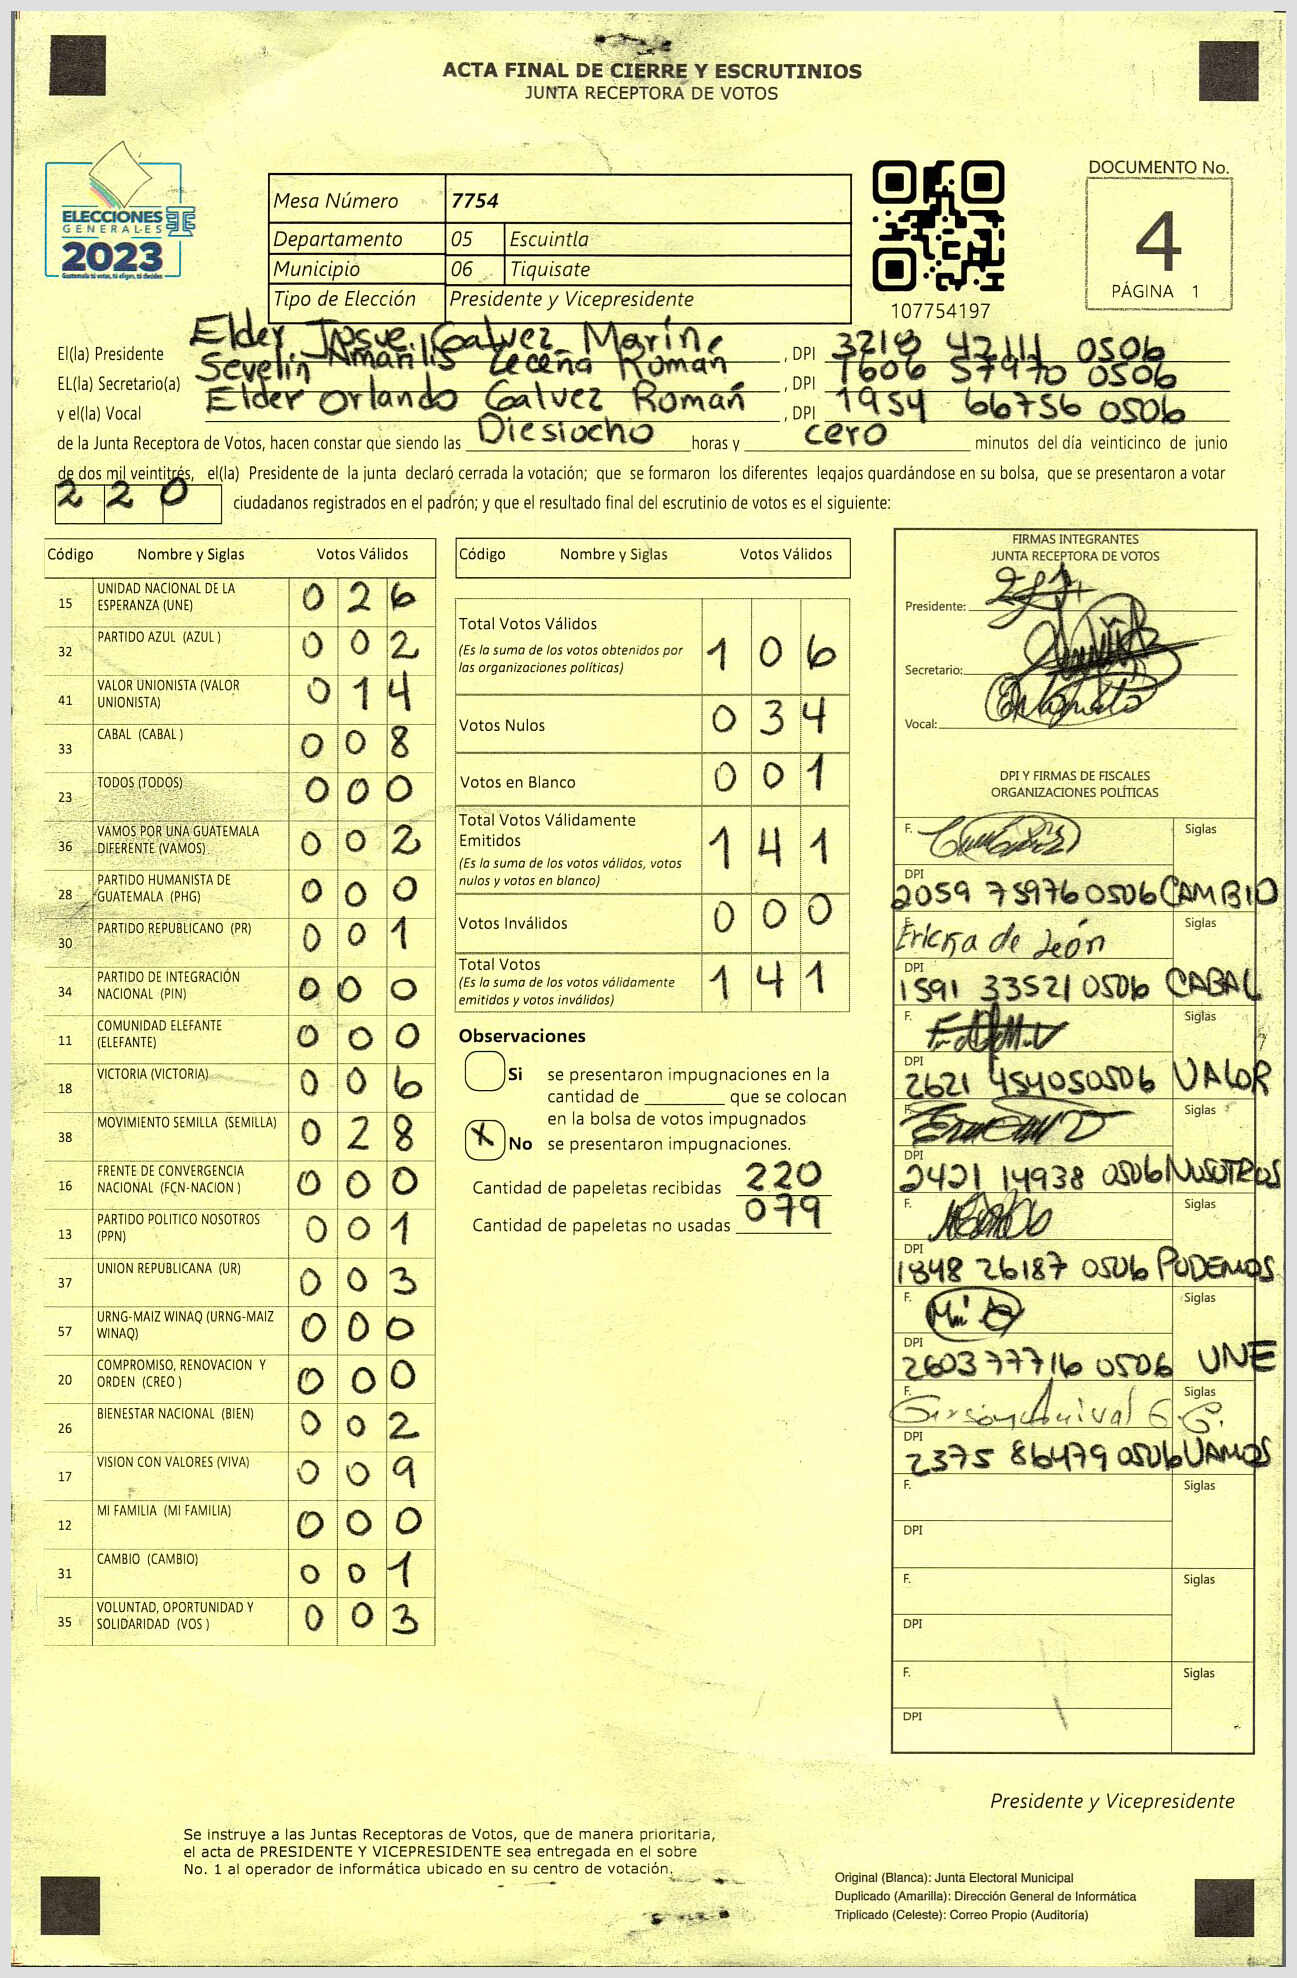 ACTA FINAL DE CIERRE Y ESCRUTINIOS
JUNTA RECEPTORA DE VOTOS
ELECCIONES
GENERALES
2023
Guatemala tú votas, tú eliges, tú decides
Mesa Número 7754
Departamento 05 Escuintla
Municipio 06 Tiquisate
Tipo de Elección Presidente y Vicepresidente
107754197
DOCUMENTO No.
4
PÁGINA 1
El(la) Presidente Elder Josue Galvez Marín, DPI 3218 42111 0506
EL(la) Secretario(a) Sevelin Amarilis Leceña Roman, DPI 1606 57970 0506
y el(la) Vocal Elder Orlando Galvez Román, DPI 1954 66756 0506
de la Junta Receptora de Votos, hacen constar que siendo las Diesiocho horas y cero minutos del día veinticinco de junio
de dos mil veintitrés, el(la) Presidente de la junta declaró cerrada la votación; que se formaron los diferentes legajos guardándose en su bolsa, que se presentaron a votar
220 ciudadanos registrados en el padrón; y que el resultado final del escrutinio de votos es el siguiente:
Código Nombre y Siglas Votos Válidos
15 UNIDAD NACIONAL DE LA ESPERANZA (UNE) 026
32 PARTIDO AZUL (AZUL ) 002
41 VALOR UNIONISTA (VALOR UNIONISTA) 014
33 CABAL (CABAL ) 008
23 TODOS (TODOS) 000
36 VAMOS POR UNA GUATEMALA DIFERENTE (VAMOS) 002
28 PARTIDO HUMANISTA DE GUATEMALA (PHG) 000
30 PARTIDO REPUBLICANO (PR) 001
34 PARTIDO DE INTEGRACIÓN NACIONAL (PIN) 000
11 COMUNIDAD ELEFANTE (ELEFANTE) 000
18 VICTORIA (VICTORIA) 006
38 MOVIMIENTO SEMILLA (SEMILLA) 028
16 FRENTE DE CONVERGENCIA NACIONAL (FCN-NACION ) 000
13 PARTIDO POLITICO NOSOTROS (PPN) 001
37 UNION REPUBLICANA (UR) 003
57 URNG-MAIZ WINAQ (URNG-MAIZ WINAQ) 000
20 COMPROMISO, RENOVACION Y ORDEN (CREO ) 000
26 BIENESTAR NACIONAL (BIEN) 002
17 VISION CON VALORES (VIVA) 009
12 MI FAMILIA (MI FAMILIA) 000
31 CAMBIO (CAMBIO) 001
35 VOLUNTAD, OPORTUNIDAD Y SOLIDARIDAD (VOS ) 003
Código Nombre y Siglas Votos Válidos
Total Votos Válidos 106
(Es la suma de los votos obtenidos por
las organizaciones políticas)
Votos Nulos 034
Votos en Blanco 001
Total Votos Válidamente
Emitidos 141
(Es la suma de los votos válidos, votos
nulos y votos en blanco)
Votos Inválidos 000
Total Votos 141
(Es la suma de los votos válidamente
emitidos y votos inválidos)
Observaciones
Si se presentaron impugnaciones en la
cantidad de ________ que se colocan
en la bolsa de votos impugnados
X No se presentaron impugnaciones.
Cantidad de papeletas recibidas 220
Cantidad de papeletas no usadas 079
FIRMAS INTEGRANTES
JUNTA RECEPTORA DE VOTOS
Presidente:
Secretario:
Vocal:
DPI Y FIRMAS DE FISCALES
ORGANIZACIONES POLÍTICAS
F. Siglas
DPI 2059 75976 0506 CAMBIO
F. Ericka de León Siglas
DPI 1591 33521 0506 CABAL
F. Siglas
DPI 2621 45405 0506 VALOR
F. Siglas
DPI 2421 14938 0506 NOSOTROS
F. Siglas
DPI 1848 26187 0506 PODEMOS
F. Siglas
DPI 2603 77716 0506 UNE
F. Siglas
DPI 2375 86479 0506 VAMOS
F. Siglas
DPI
F. Siglas
DPI
F. Siglas
DPI
Presidente y Vicepresidente
Se instruye a las Juntas Receptoras de Votos, que de manera prioritaria,
el acta de PRESIDENTE Y VICEPRESIDENTE sea entregada en el sobre
No. 1 al operador de informática ubicado en su centro de votación.
Original (Blanca): Junta Electoral Municipal
Duplicado (Amarilla): Dirección General de Informática
Triplicado (Celeste): Correo Propio (Auditoría)